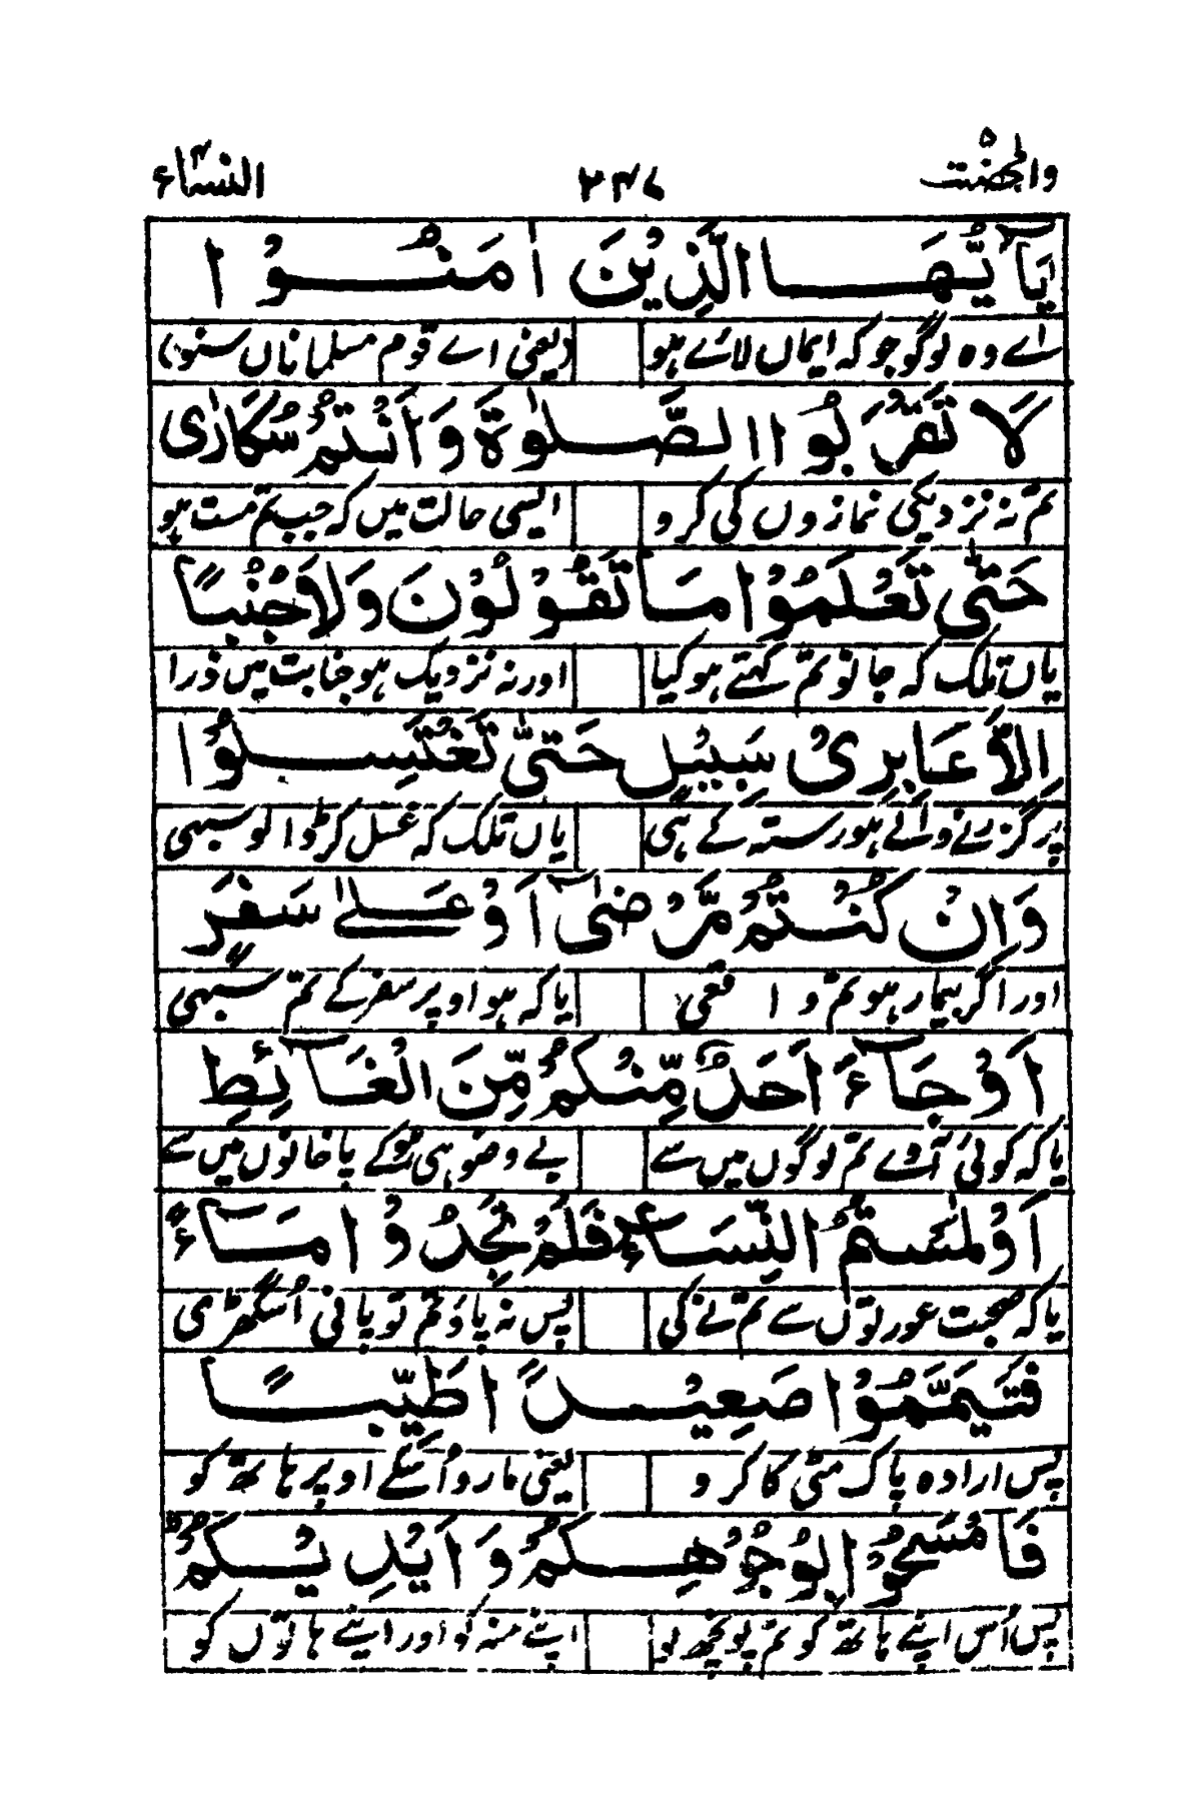 والمحصنت ۵ ۲۴۷ النساء ۴
يَآيُّهَا الَّذِيْنَ اٰمَنُوْا
اے وہ لوگو جو کہ ایماں لائے ہو (یعنی اے قوم مسلماناں سنو)
لَا تَقْرَبُوا الصَّلٰوةَ وَاَنْتُمْ سُكَارٰى
تم نہ نزدیکی نمازوں کی کرو ایسی حالت میں کہ جب تم مست ہو
حَتّٰى تَعْلَمُوْا مَا تَقُوْلُوْنَ وَلَا جُنُبًا
یاں تلک کہ جانو تم کہتے ہو کیا اور نہ نزدیک ہو جنابت میں ذرا
اِلَّا عَابِرِىْ سَبِيْلٍ حَتّٰى تَغْتَسِلُوْا
پر گزرنے والے ہو رستہ کے ہی یاں تلک کہ غسل کر ڈالو سبھی
وَاِنْ كُنْتُمْ مَّرْضٰىٓ اَوْ عَلٰى سَفَرٍ
اور اگر بیمار ہو تم واقعی یا کہ ہو اوپر سفر کے تم سبھی
اَوْ جَآءَ اَحَدٌ مِّنْكُمْ مِّنَ الْغَآئِطِ
یا کہ کوئی آوے تم لوگوں میں سے بے وضو ہی ہوکے پاخانوں میں سے
اَوْ لٰمَسْتُمُ النِّسَآءَ فَلَمْ تَجِدُوْا مَآءً
یا کہ صحبت عورتوں سے تم نے کی پس نہ پاؤ تم تو پانی اُس گھڑی
فَتَيَمَّمُوْا صَعِيْدًا طَيِّبًا
پس ارادہ پاک مٹی کا کرو یعنی مارو اُسکے اوپر ہاتھ کو
فَامْسَحُوْا بِوُجُوْهِكُمْ وَاَيْدِيْكُمْ ؕ
پس اُس اپنے ہاتھ کو تم پونچھ لو اپنے منہ کو اور اپنے ہاتوں کو